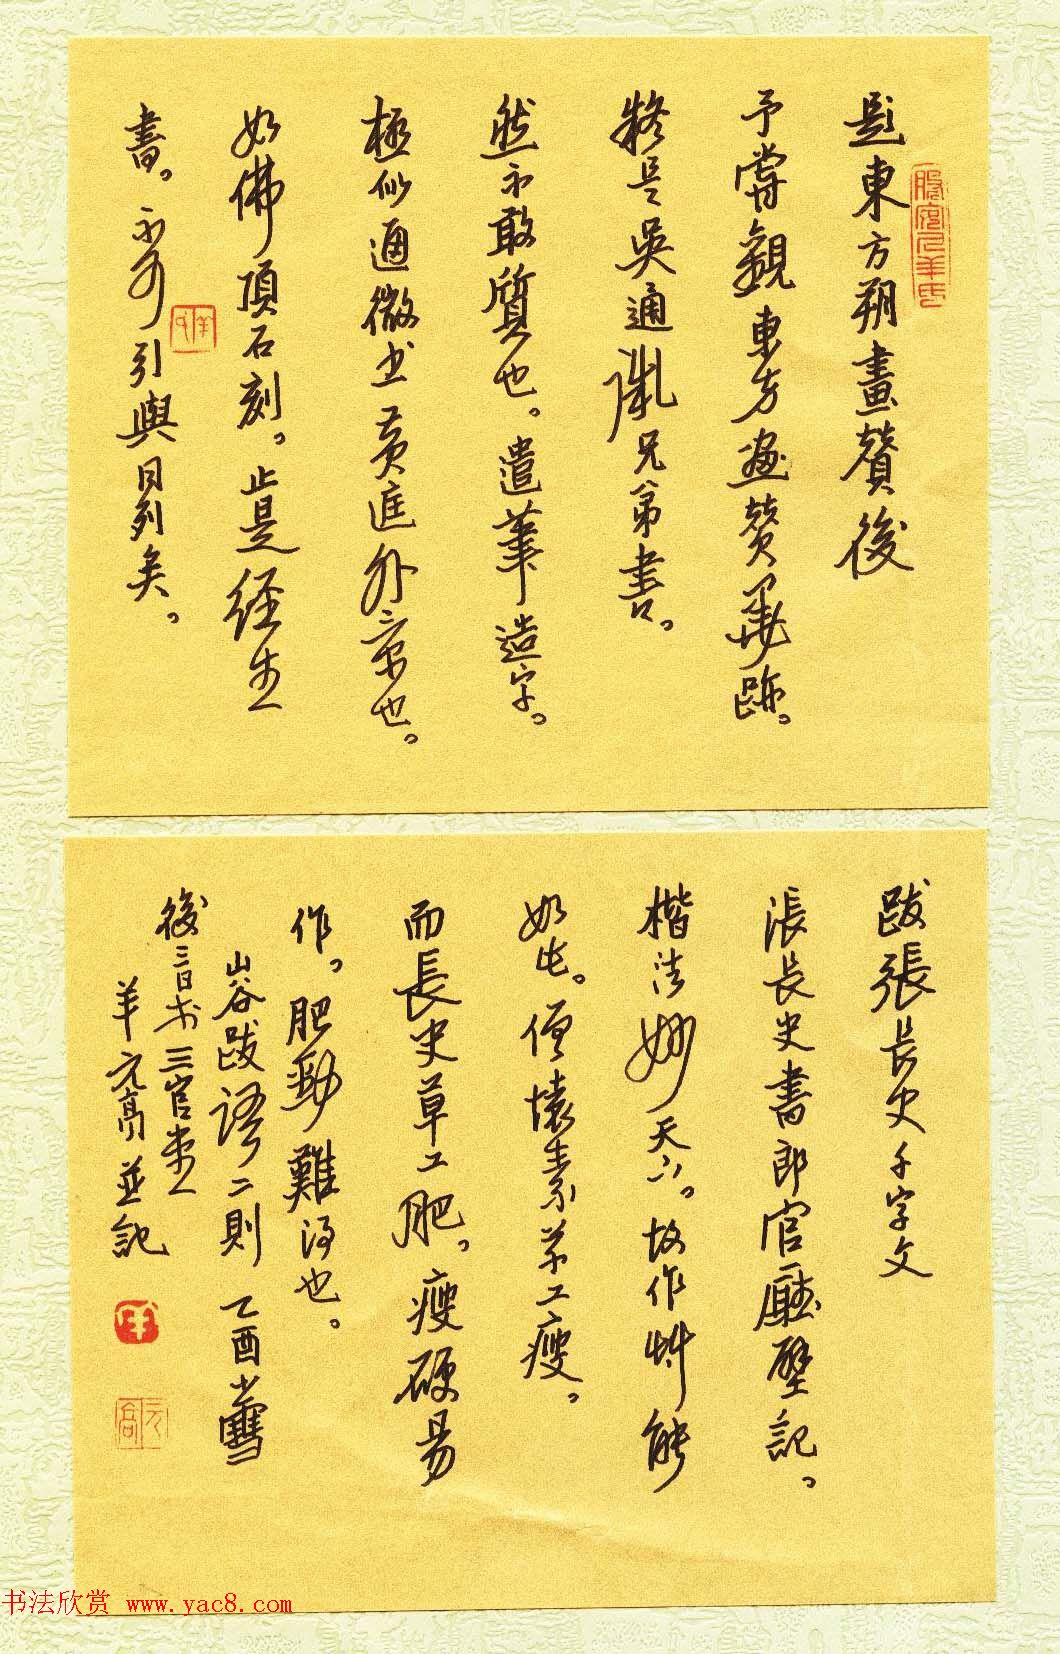 題東方朔畫贊後
予嘗觀東方畫贊墨跡。
疑是吳通微兄弟書。
然不敢質也。遣筆造字。
極似通微书黃庭外景也。
如佛頂石刻。止是經生
書。不可引與同列矣。
跋張長史千字文
張長史書郎官廳壁記。
楷法妙天下。故作艸能
如此。僧懷素草工瘦。
而長史草工肥。瘦硬易
作。肥勁難得也。
山谷跋語二則 乙酉小雪
後三日书三官堂
羊元高並記
羊
元高
书法欣赏 www.yac8.com